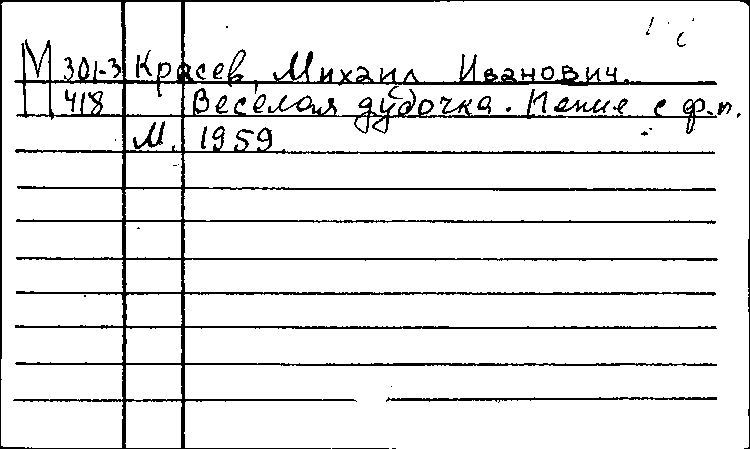 М 301-3 Красев, Михаил Иванович.
418 Веселая дудочка. Пение с ф.п.
М. 1959.